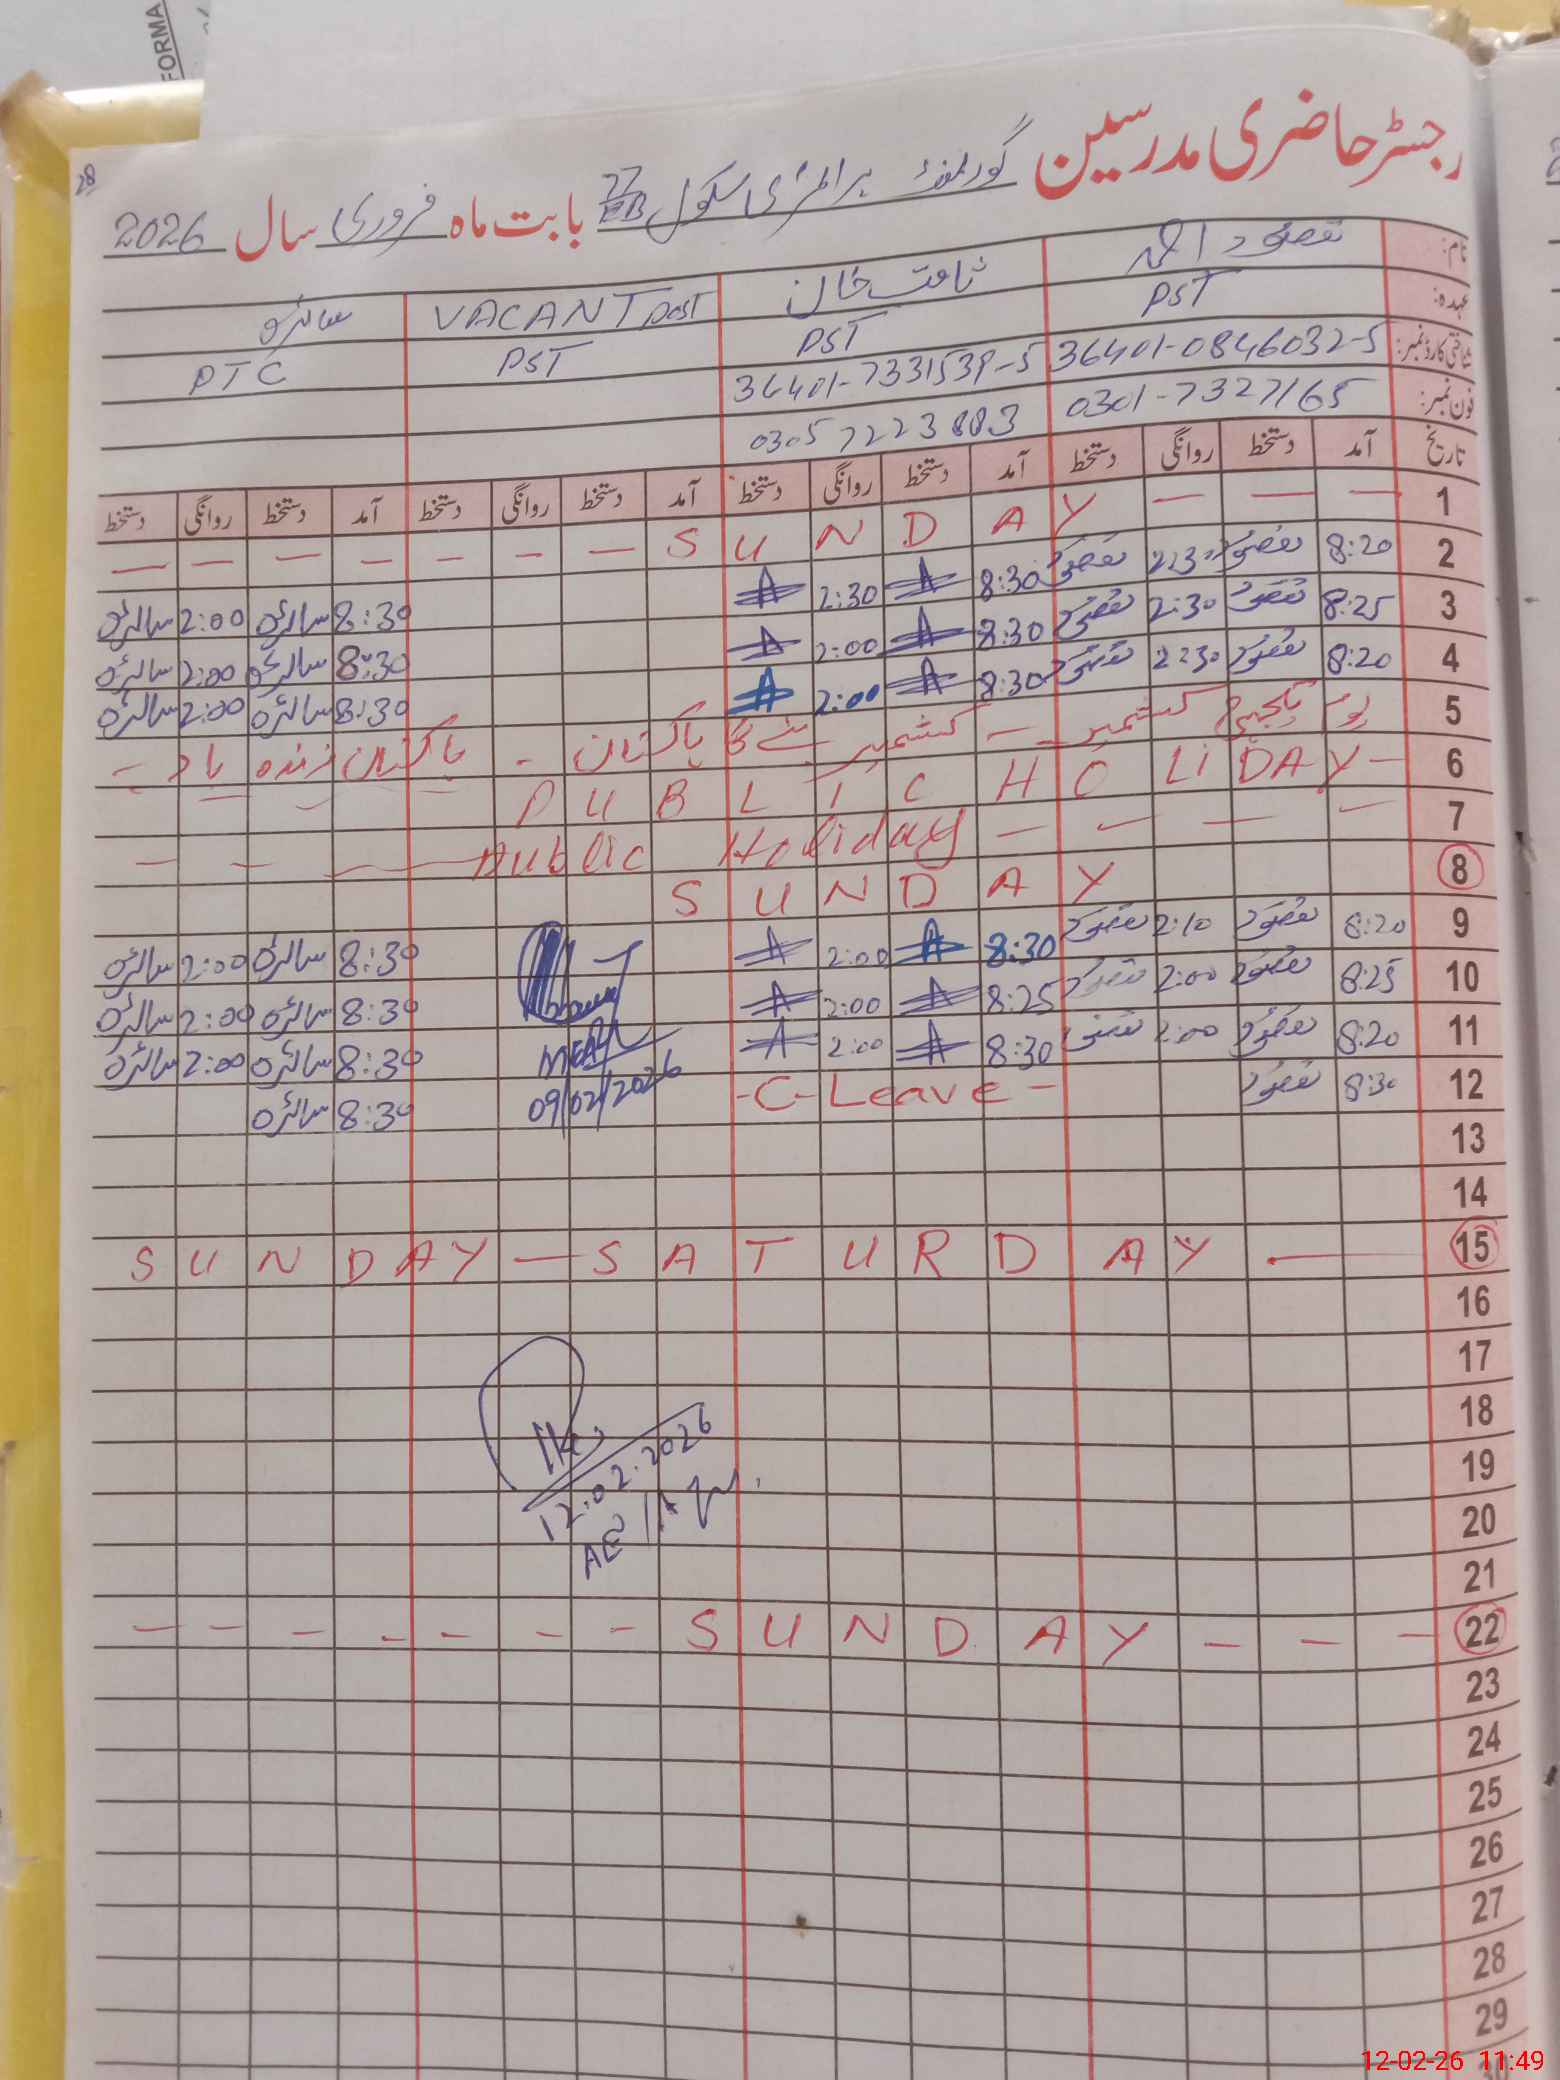 FORMA
28
رجسٹر حاضری مدرسین گورنمنٹ پرائمری سکول 27/EB بابت ماہ فروری سال 2026
نام: مقصود احمد ثاقب خان VACANT post سائرہ
عہدہ: PST PST PST PTC
شناختی کارڈ نمبر: 36401-0846032-5 36401-7331539-5
فون نمبر: 0301-7327165 0305 7223883
تاریخ آمد دستخط روانگی دستخط آمد دستخط روانگی دستخط آمد دستخط روانگی دستخط آمد دستخط روانگی دستخط
1 — — — S U N D A Y — — — — — — —
2 8:20 مقصود 2:30 مقصود 8:30 A 2:30 A 8:30 سائرہ 2:00 سائرہ
3 8:25 مقصود 2:30 مقصود 8:30 A 2:00 A 8:30 سائرہ 2:00 سائرہ
4 8:20 مقصود 2:30 مقصود 8:30 A 2:00 A 8:30 سائرہ 2:00 سائرہ
5 یوم یکجہتی کشمیر - کشمیر بنے گا پاکستان - پاکستان زندہ باد -
6 P U B L I C H O LI DAY -
7 — — — — Public Holiday — — — —
8 S U N D A Y
9 8:20 مقصود 2:10 مقصود 8:30 A 2:00 A 8:30 سائرہ 2:00 سائرہ
10 8:25 مقصود 2:00 مقصود 8:25 A 2:00 A 8:30 سائرہ 2:00 سائرہ
11 8:20 مقصود 2:00 مقصود 8:30 A 2:00 A 8:30 سائرہ 2:00 سائرہ
12 8:30 مقصود -C-Leave- 8:30 سائرہ
MEA
09/02/2026
13
14
15 S U N D A Y — S A T U R D A Y —
16
17
18
12.02.2026
19
AEO
20
21
22 - - - - - - - S U N D A Y - - -
23
24
25
26
27
28
29
30
12-02-26 11:49